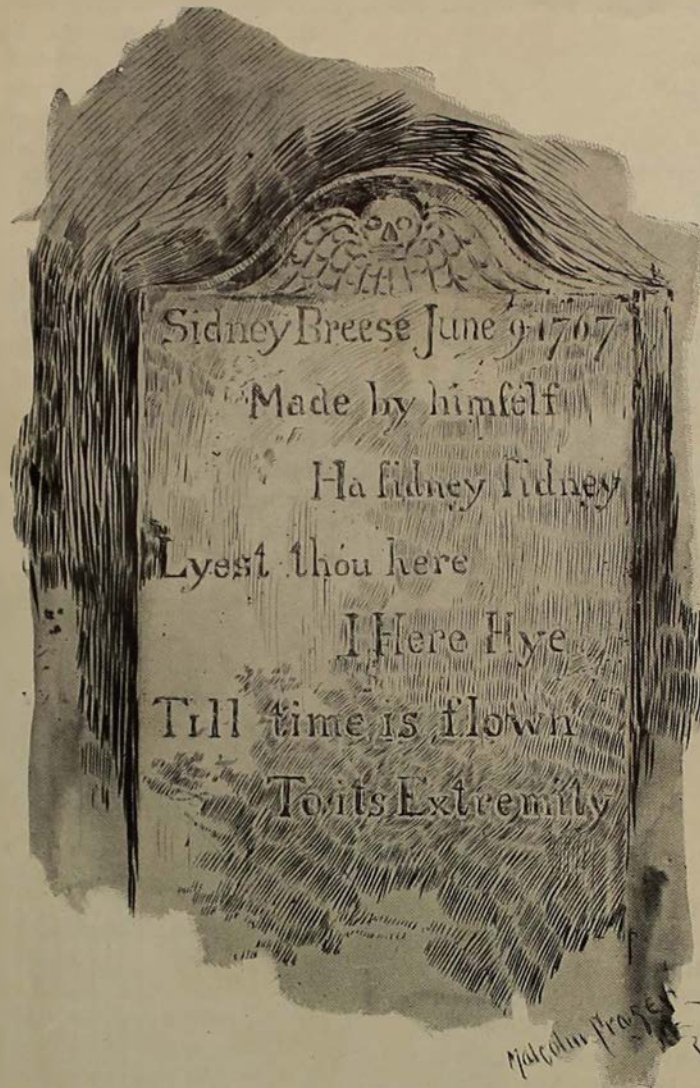 Sidney Breese June 9 1767
Made by himſelf
Ha ſidney ſidney
Lyest thou here
I Here Hye
Till time is flown
To its Extremity
Malcolm Fraser